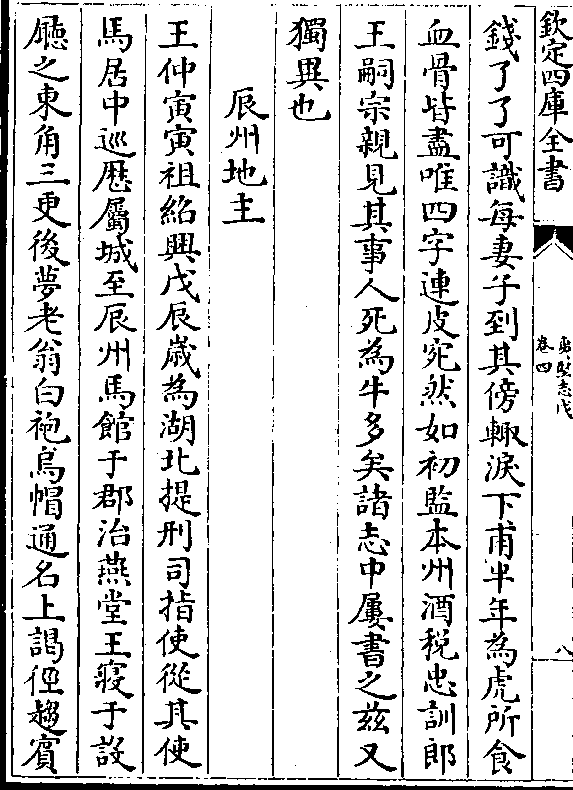 欽定四庫全書
夷堅志戊
卷四
八
錢了了可識每妻子到其傍輙淚下甫半年為虎所食
血骨皆盡唯四字連皮宛然如初監本州酒稅忠訓郎
王嗣宗親見其事人死為牛多矣諸志中屢書之兹又
獨異也
辰州地主
王仲寅寅祖紹興戊辰歲為湖北提刑司指使從其使
馬居中巡歷屬城至辰州馬館于郡治燕堂王寢于設
㕔之東角三更後夢老翁白袍烏帽通名上謁徑趨賓